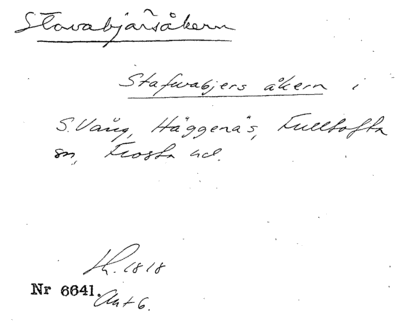 Stavabjärsåkern
Stafwabjers åkern i
S. Vång, Häggenäs, Fulltofta
sn, Frosta hd.
Lh. 1818
Nr 6641. Akt 6.